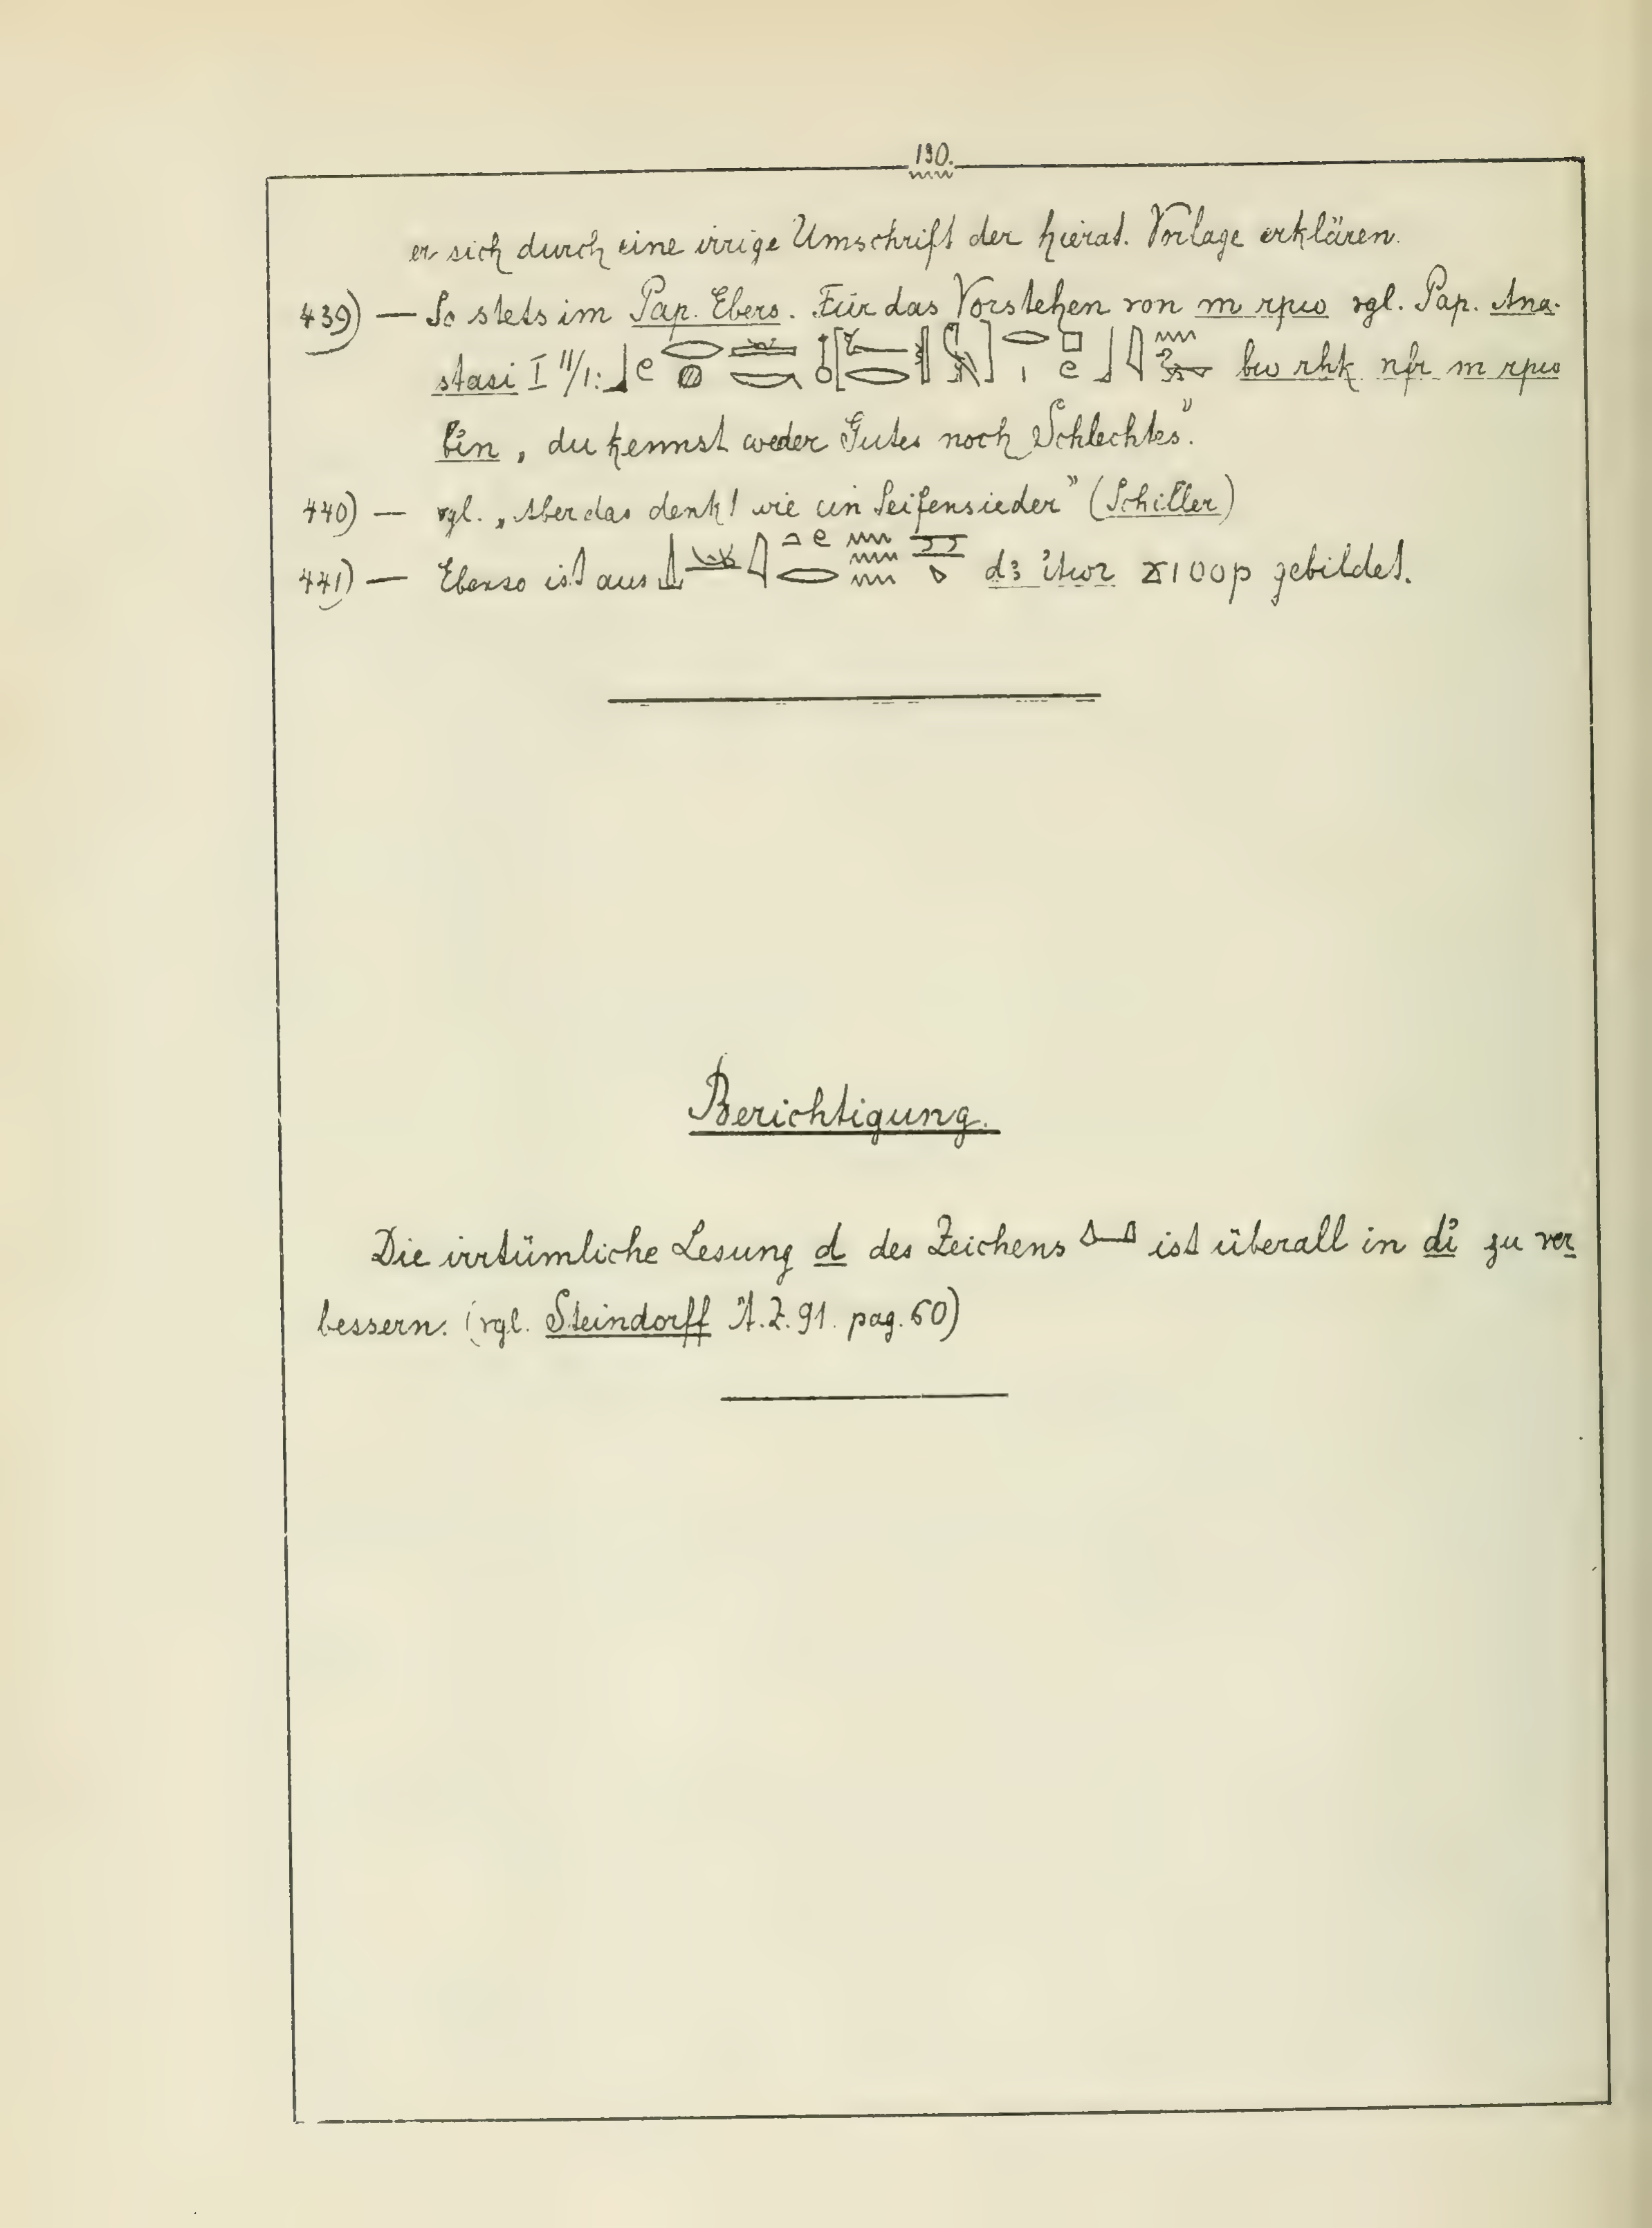 190.
er sich durch eine irrige Umschrift der hierat. Vorlage erklären.
439) — So stets im Pap. Ebers. Für das Vorstehen von m rpw vgl. Pap. Ana-
stasi I 11/1: bw rḫk nfr m rpw
bin „du kennst weder Gutes noch Schlechtes".
440) — vgl. „Aber das denkt wie ein Seifensieder" (Schiller)
441) — Ebenso ist aus d3 itwr ϫιοορ gebildet.
Berichtigung.
Die irrtümliche Lesung d des Zeichens ist überall in di̓ zu ver
bessern. (vgl. Steindorff Ä.Z. 91. pag. 60)